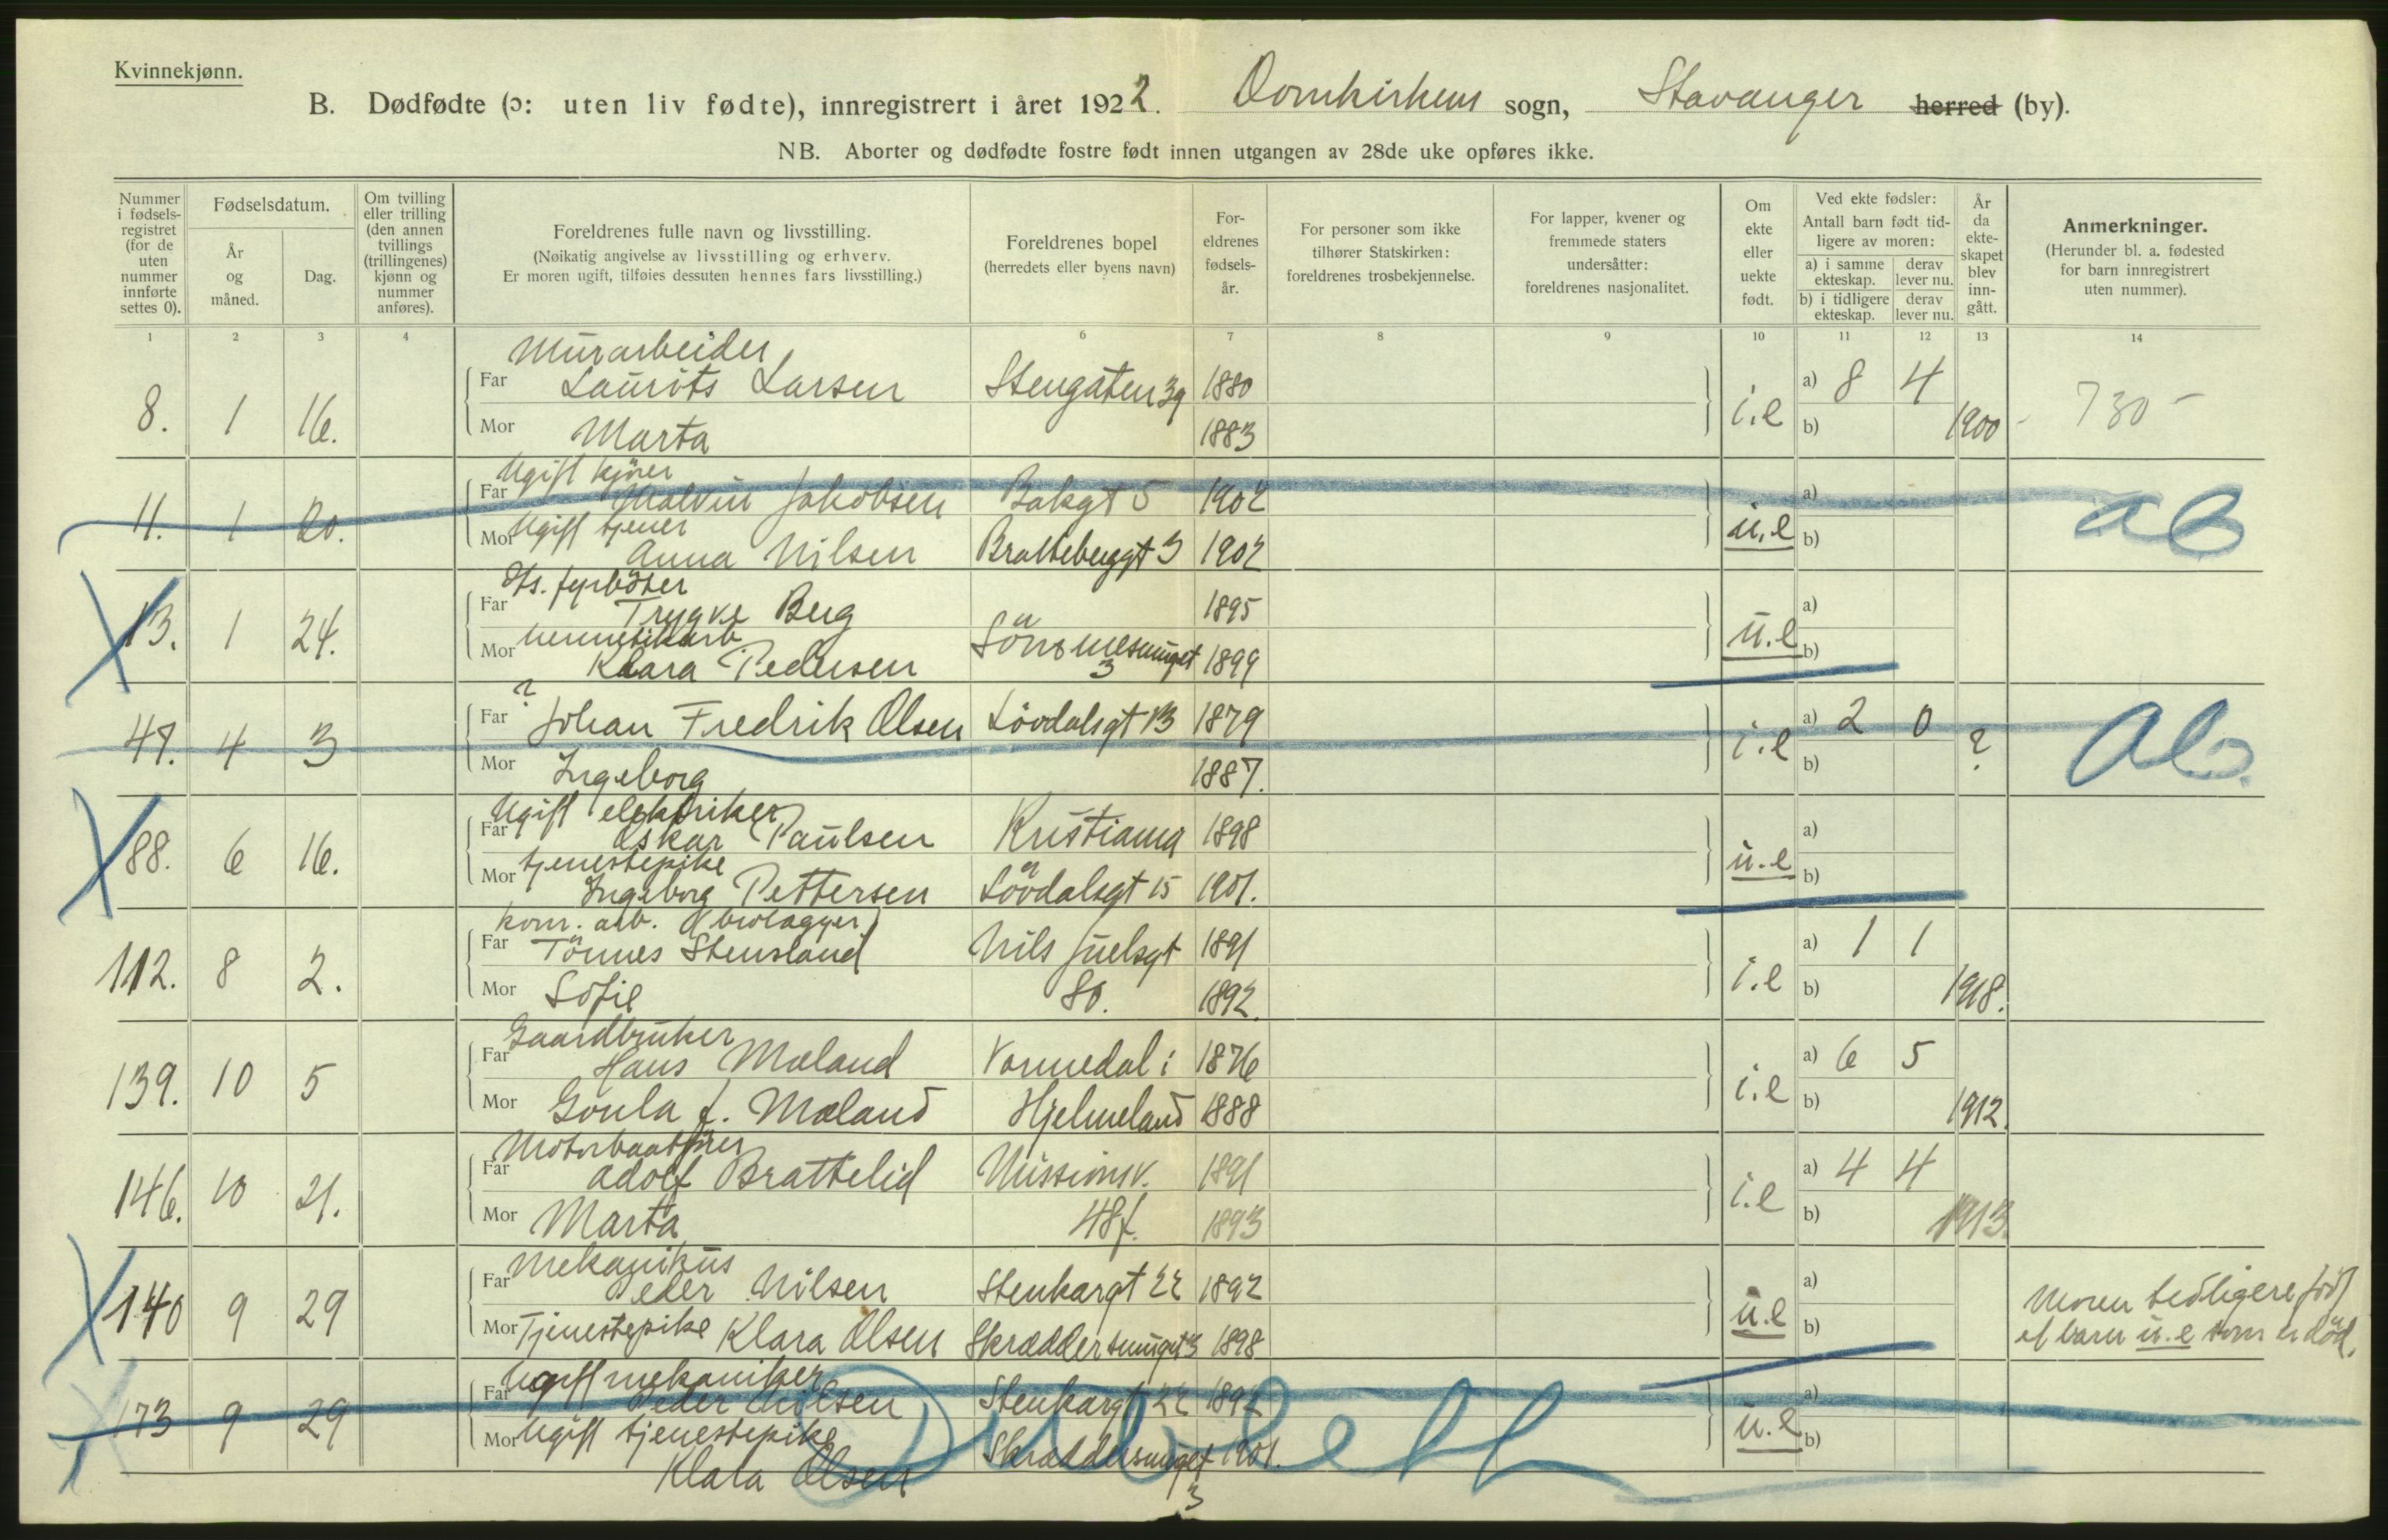 Kvinnekjønn.
B. Dødfødte (ɔ: uten liv fødte), innregistrert i året 1922. Domkirkens sogn, Stavanger herred (by).
NB. Aborter og dødfødte fostre født innen utgangen av 28de uke opføres ikke.
Nummer i fødsels-registret (for de uten nummer innførte settes 0).
Fødselsdatum.
År og måned.
Dag.
Om tvilling eller trilling (den annen tvillings (trillingenes) kjønn og nummer anføres).
Foreldrenes fulle navn og livsstilling.
(Nøikatig angivelse av livsstilling og erhverv.
Er moren ugift, tilføies dessuten hennes fars livsstilling.)
Foreldrenes bopel
(herredets eller byens navn)
For-eldrenes fødsels-år.
For personer som ikke tilhører Statskirken: foreldrenes trosbekjennelse.
For lapper, kvener og fremmede staters undersåtter: foreldrenes nasjonalitet.
Om ekte eller uekte født.
Ved ekte fødsler:
Antall barn født tid-ligere av moren:
a) i samme ekteskap. derav lever nu.
b) i tidligere ekteskap. derav lever nu.
År da ekte-skapet blev inn-gått.
Anmerkninger.
(Herunder bl. a. fødested for barn innregistrert uten nummer).
1 2 3 4 6 7 8 9 10 11 12 13 14
Murarbeider
8. 1 16. Far Laurits Larsen Stengaten 39 1880 i.e a) 8 4 1900 730 -
Mor Marta 1883 b)
Ugift kjører
11. 1 20. Far Malvin Jakobsen Bakgt 5 1902 u.e a) ab
Mor Ugift tjener
Anna Nilsen Brattebuggt 3 1902 b)
Ds. fyrbøter
13. 1 24. Far Trygve Berg 1895 u.e a)
Mor hermetikarb
Klara Pedersen 3 1899 b)
?
47. 4 3 Far Johan Fredrik Olsen Lövdalsgt 13 1879 i.e a) 2 0 ? Ab.
Mor Ingeborg 1887. b)
Ugift elektriker
88. 6 16. Far Oskar Paulsen Kristiania 1898 u.e a)
Mor tjenestepike
Ingeborg Pettersen Lövdalsgt 15 1901. b)
kom. arb. (brolægger)
112. 8 2. Far Tönnes Stensland Nils Juelsgt 1891 i.e a) 1 1 1918.
Mor Sofie 80. 1892. b)
Gaardbruker
139. 10 5 Far Hans Mæland Vormedal i 1876 i.e a) 6 5 1912.
Mor Goula f. Mæland Hjelmeland 1888 b)
Motorbaatfører
146. 10 21. Far Adolf Brattelid Missionsv. 1891 i.e a) 4 4 1913.
Mor Marta 48f. 1893 b)
Mekanikus
140 9 29 Far Peder Nilsen Stenkargt 22 1892 u.e a) Moren tidligere född
Mor Tjenestepike Klara Olsen Skræddersmuget 3 1898 b) et barn u.e som er död.
Ugift mekaniker
173 9 29 Far Peder Nilsen Stenkargt 22 1892 u.e a)
Mor Ugift tjenestepike
Klara Olsen Skræddersmuget 1901. b)
3
Dublett